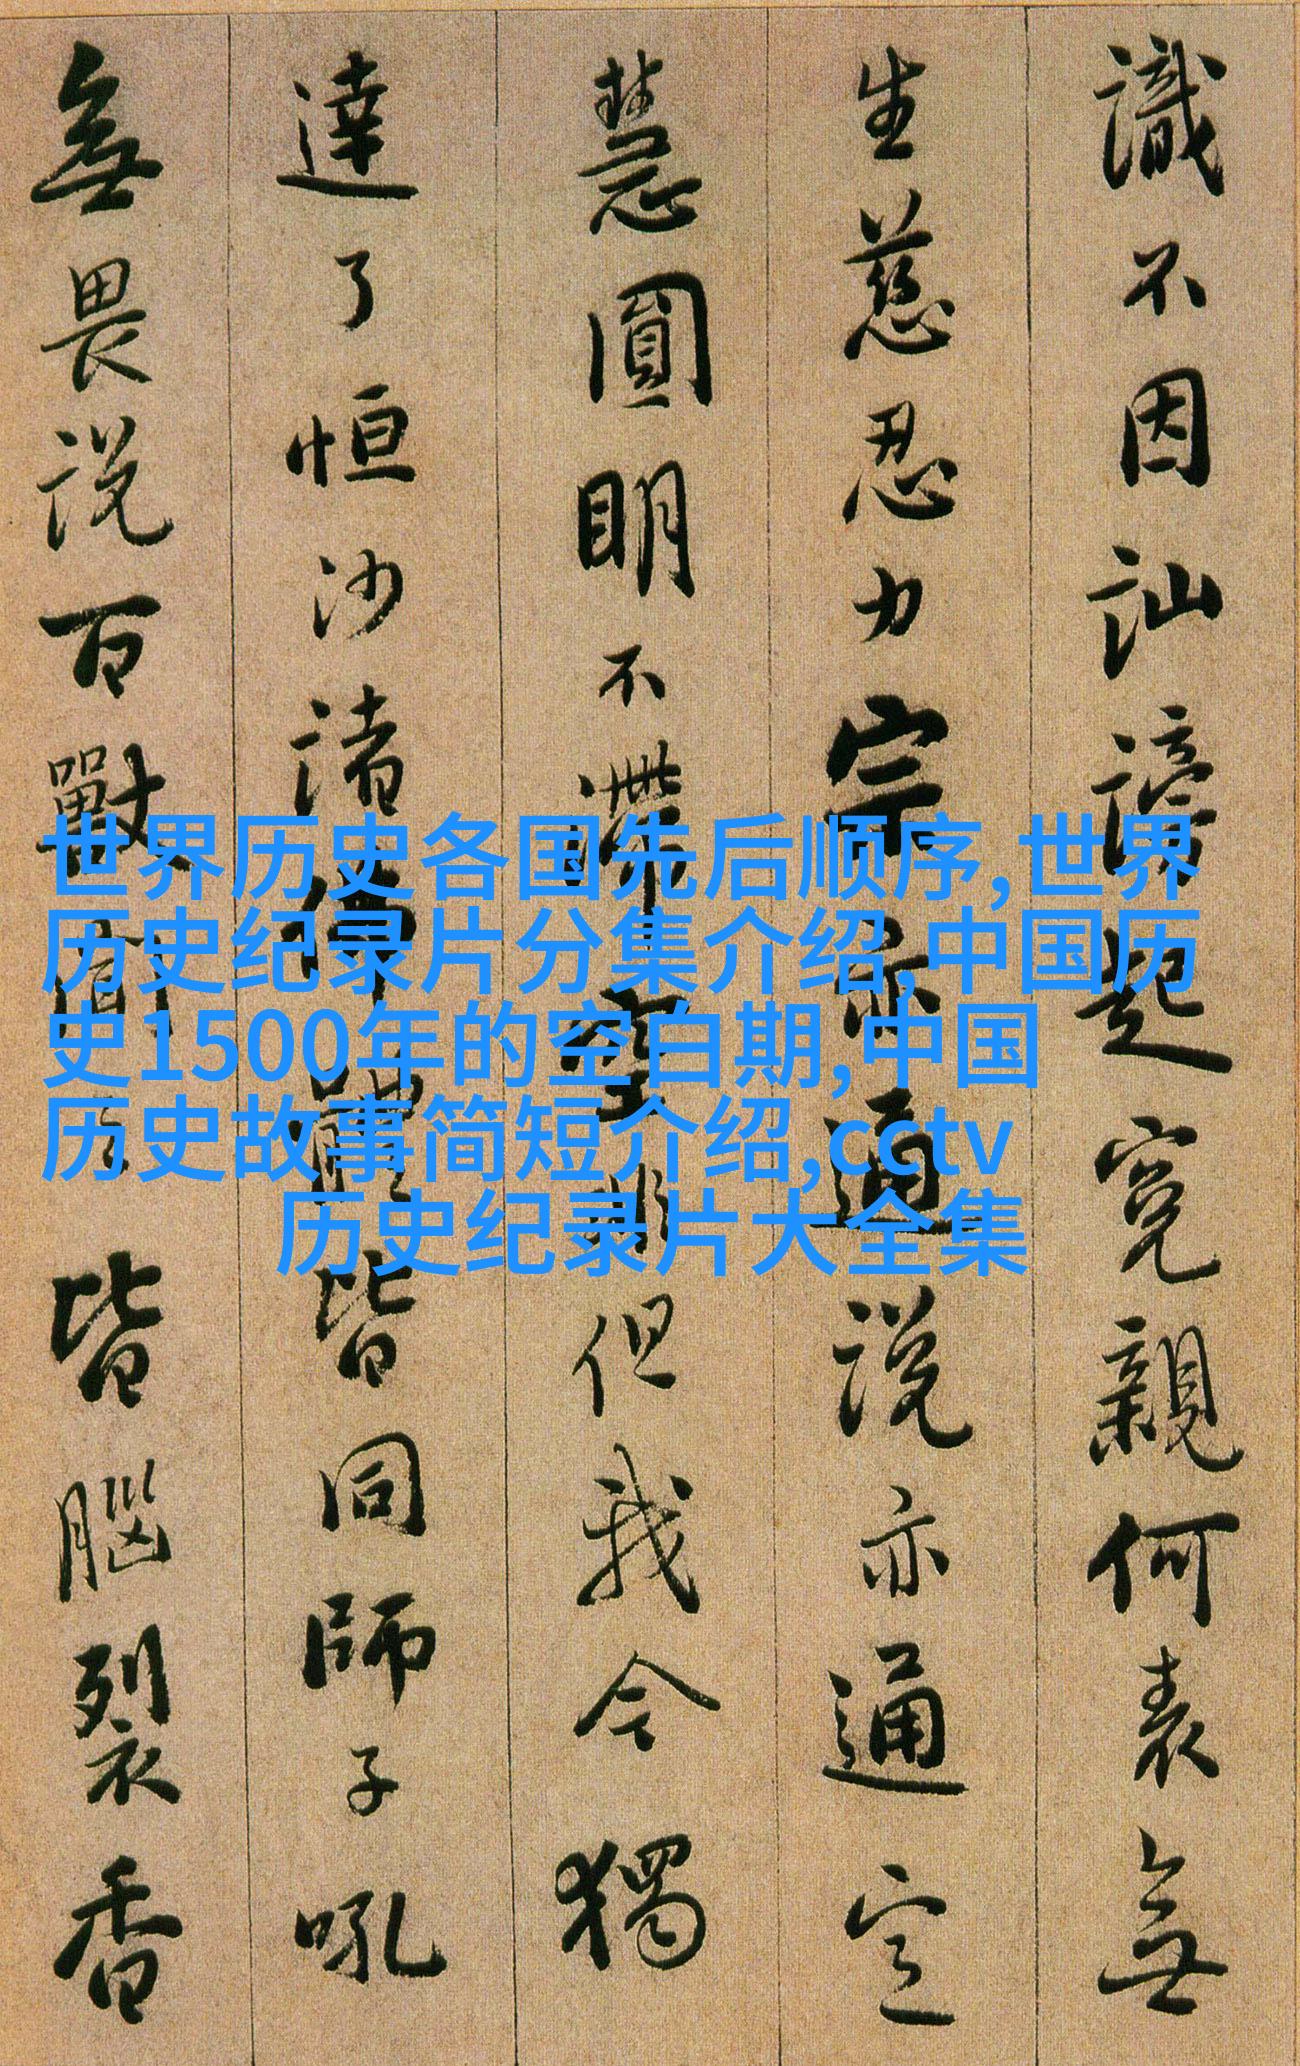 識不因訕謗起寃親何表無
生慈忍力宗亦通説亦通定
慧圓明不滯空非但我今獨
達了恒沙諸佛體皆同師子吼
無畏説百獸聞皆腦裂香
世界历史各国先后顺序,世界
历史纪录片分集介绍,中国历
史1500年的空白期,中国
历史故事简短介绍,cctv
历史纪录片大全集